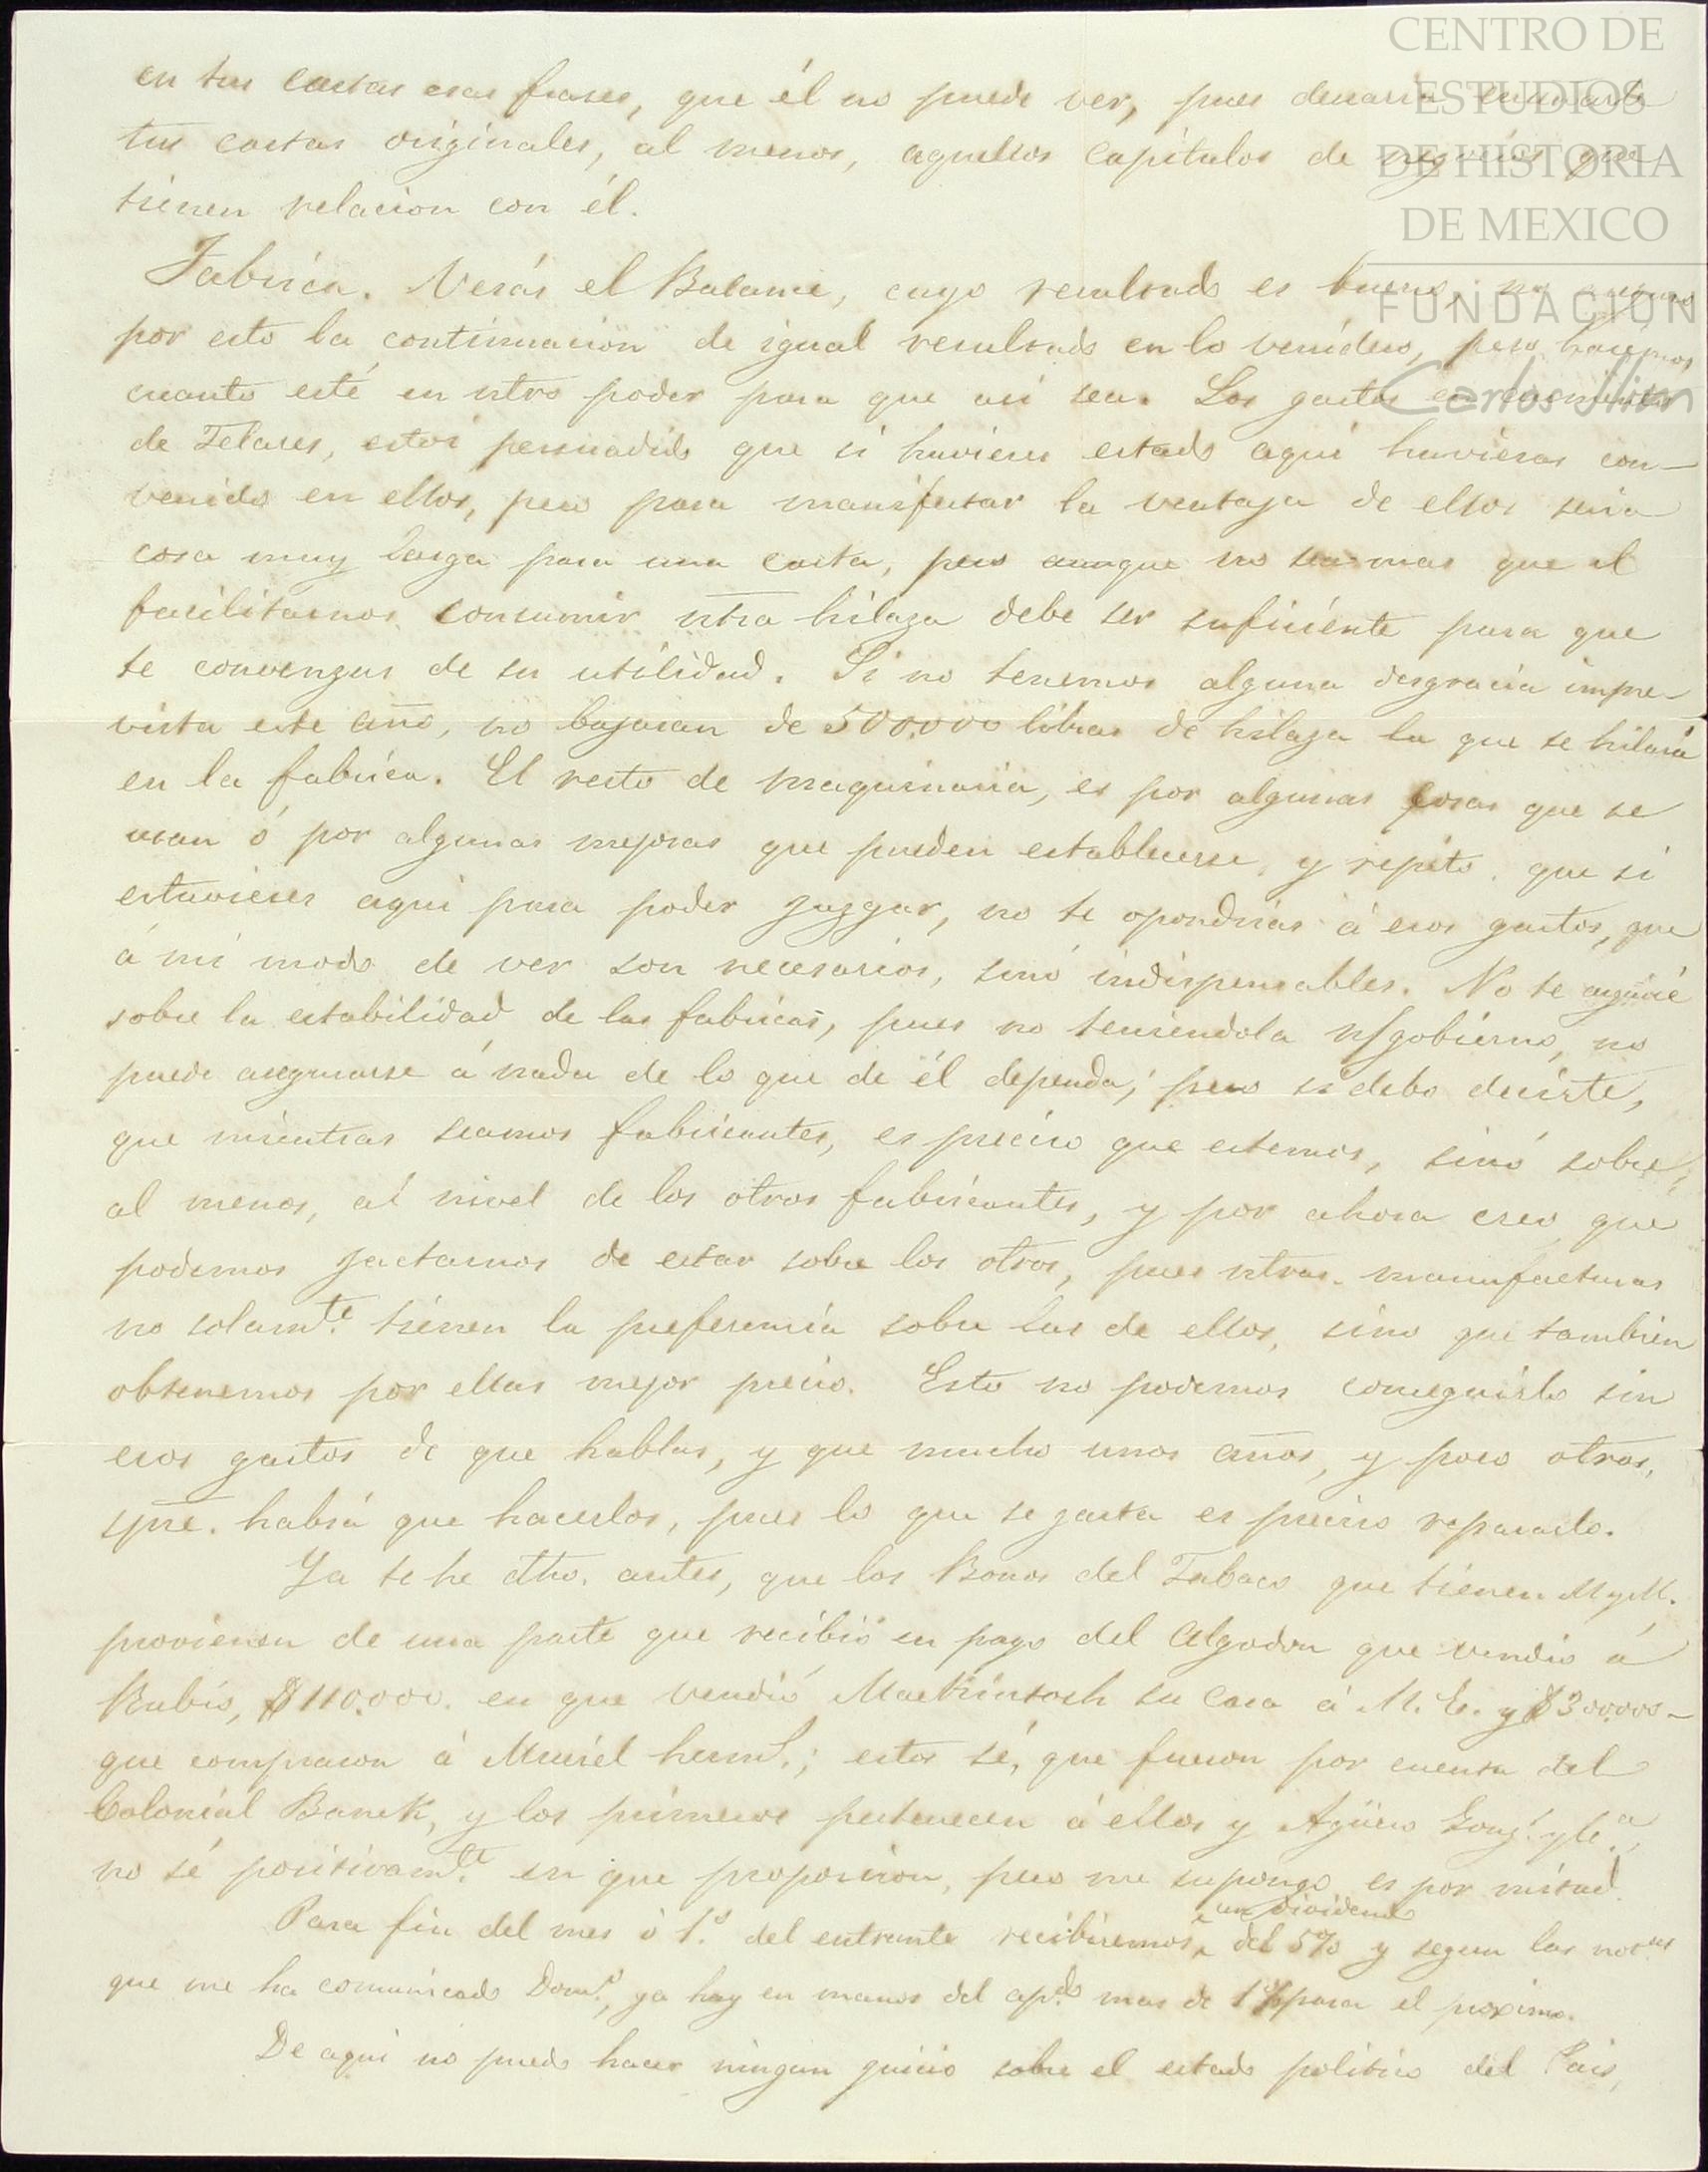 en tus cartas esas frases, que él no puede ver, pues desearia enseñarle
tus cartas originales, al menos, aquellos capitulos de negocios que
tienen relacion con él.
Fabrica. Verás el Balance, cuyo resultado es bueno, no
por esto la continuacion de igual resultado en lo venidero, pero haremos
cuanto esté en ntro poder para que asi sea. Los gastos en
de Telares, estoi persuadido que si huvieses estado aqui huvieras con-
venido en ellos, pero para manifestar la ventaja de ellos seria
cosa muy larga para una carta, pero aunque no sea mas que el
facilitarnos consumir ntra hilaza debe ser suficiente para que
te convenzas de su utilidad. Si no tenemos alguna desgracia impre-
vista este año, no bajaran de 500.000 libras de hilaza la que se hilará
en la fabrica. El resto de maquinaria, es por algunas cosas que se
usan ó por algunas mejoras que pueden establecerse, y repito, que si
estuvieses aqui para poder juzgar, no te opondrias á esos gastos, que
á mi modo de ver son necesarios, sinó indispensables. No te arguiré
sobre la estabilidad de las fabricas, pues no teniendola n/gobierno, no
puede asegurarse á nada de lo que de él dependa; pero si debo decirte,
que mientras seamos fabricantes, es preciso que estemos, sinó sobre,
al menos, al nivel de los otros fabricantes, y por ahora creo que
podemos jactarnos de estar sobre los otros, pues ntras. manufacturas
no solamte. tienen la preferencia sobre las de ellos, sino que tambien
obtenemos por ellas mejor precio. Esto no podemos conseguirlo sin
esos gastos de que hablas, y que mucho unos años, y poco otros,
spre. habrá que hacerlos, pues lo que se gasta es preciso repararlo.
Ya te he dho. antes, que los Bonos del Tabaco que tienen M y M.
provienen de una parte que recibió en pago del Algodon que vendio á
Rubio, $110.000. en que vendió Mackintosh su casa á M. E. y $300.000-
que compraron á Muriel herms.; estos sé, que fueron por cuenta del
Colonial Banck, y los primeros pertenecen á ellos y Agüero Gonz. y Ca.,
no sé positivamte. en que proporcion, pero me supongo es por mitad.
Para fin del mes ó 1º. del entrante recibiremos un dividendo del 5% y segun las notas
que me ha comunicado Domo., ya hay en manos del apdo. mas de 1% para el proximo.
De aqui no puedo hacer ningun juicio sobre el estado politico del Pais,
CENTRO DE
ESTUDIOS
DE HISTORIA
DE MEXICO
FUNDACIÓN
Carlos Slim